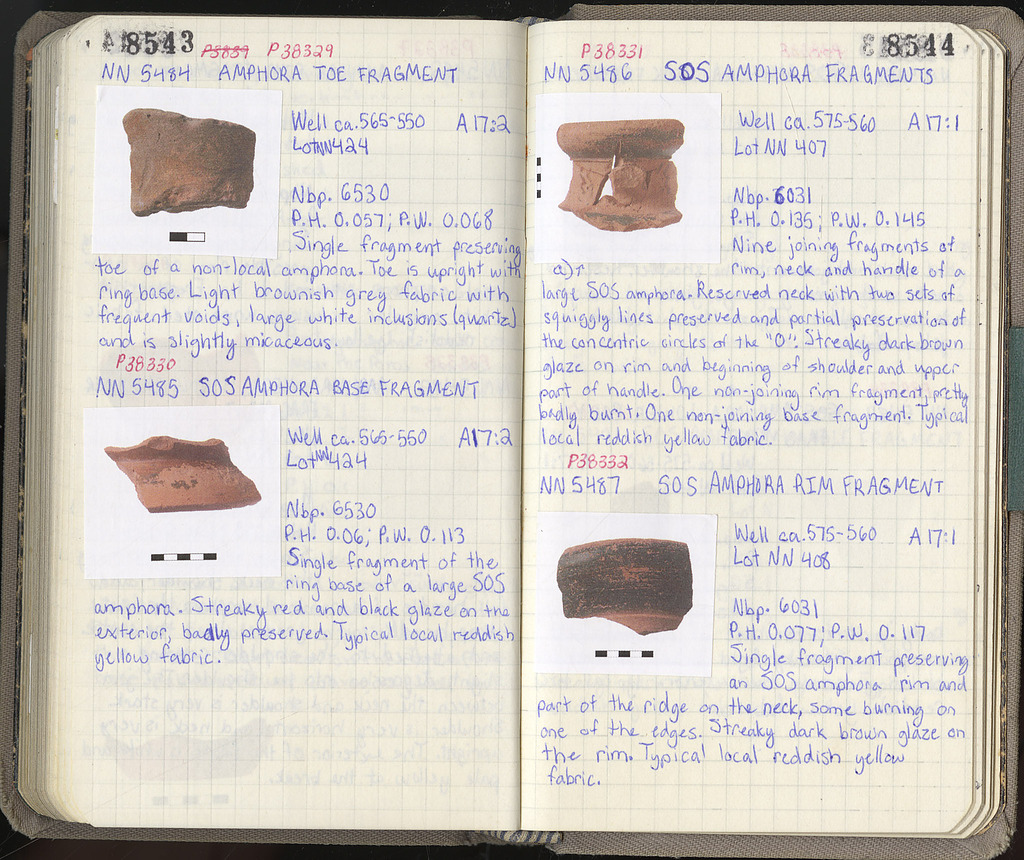 8543 P3839 P38329
NN 5484 AMPHORA TOE FRAGMENT
Well ca. 565-550 A 17:2
Lot NN 424
Nbp. 6530
P.H. 0.057; P.W. 0.068
Single fragment preserving
toe of a non-local amphora. Toe is upright with
ring base. Light brownish grey fabric with
frequent voids, large white inclusions (quartz)
and is slightly micaceous.
P38330
NN 5485 SOS AMPHORA BASE FRAGMENT
Well ca. 565-550 A17:2
Lot NN 424
Nbp. 6530
P.H. 0.06; P.W. 0.113
Single fragment of the
ring base of a large SOS
amphora. Streaky red and black glaze on the
exterior, badly preserved. Typical local reddish
yellow fabric.
P38331 8544
NN 5486 SOS AMPHORA FRAGMENTS
Well ca. 575-560 A 17:1
Lot NN 407
Nbp. 6031
P.H. 0.135; P.W. 0.145
Nine joining fragments of
a) rim, neck and handle of a
large SOS amphora. Reserved neck with two sets of
squiggly lines preserved and partial preservation of
the concentric circles of the "O". Streaky dark brown
glaze on rim and beginning of shoulder and upper
part of handle. One non-joining rim fragment, pretty
badly burnt. One non-joining base fragment. Typical
local reddish yellow fabric.
P38332
NN 5487 SOS AMPHORA RIM FRAGMENT
Well ca. 575-560 A 17:1
Lot NN 408
Nbp. 6031
P.H. 0.077; P.W. 0.117
Single fragment preserving
an SOS amphora rim and
part of the ridge on the neck, some burning on
one of the edges. Streaky dark brown glaze on
the rim. Typical local reddish yellow
fabric.